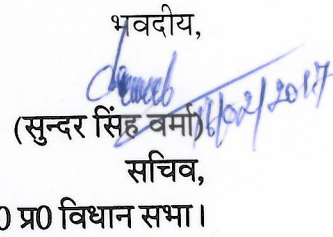 भवदीय,
16/02/2017
(सुन्दर सिंह वर्मा)
सचिव,
0 प्र0 विधान सभा।